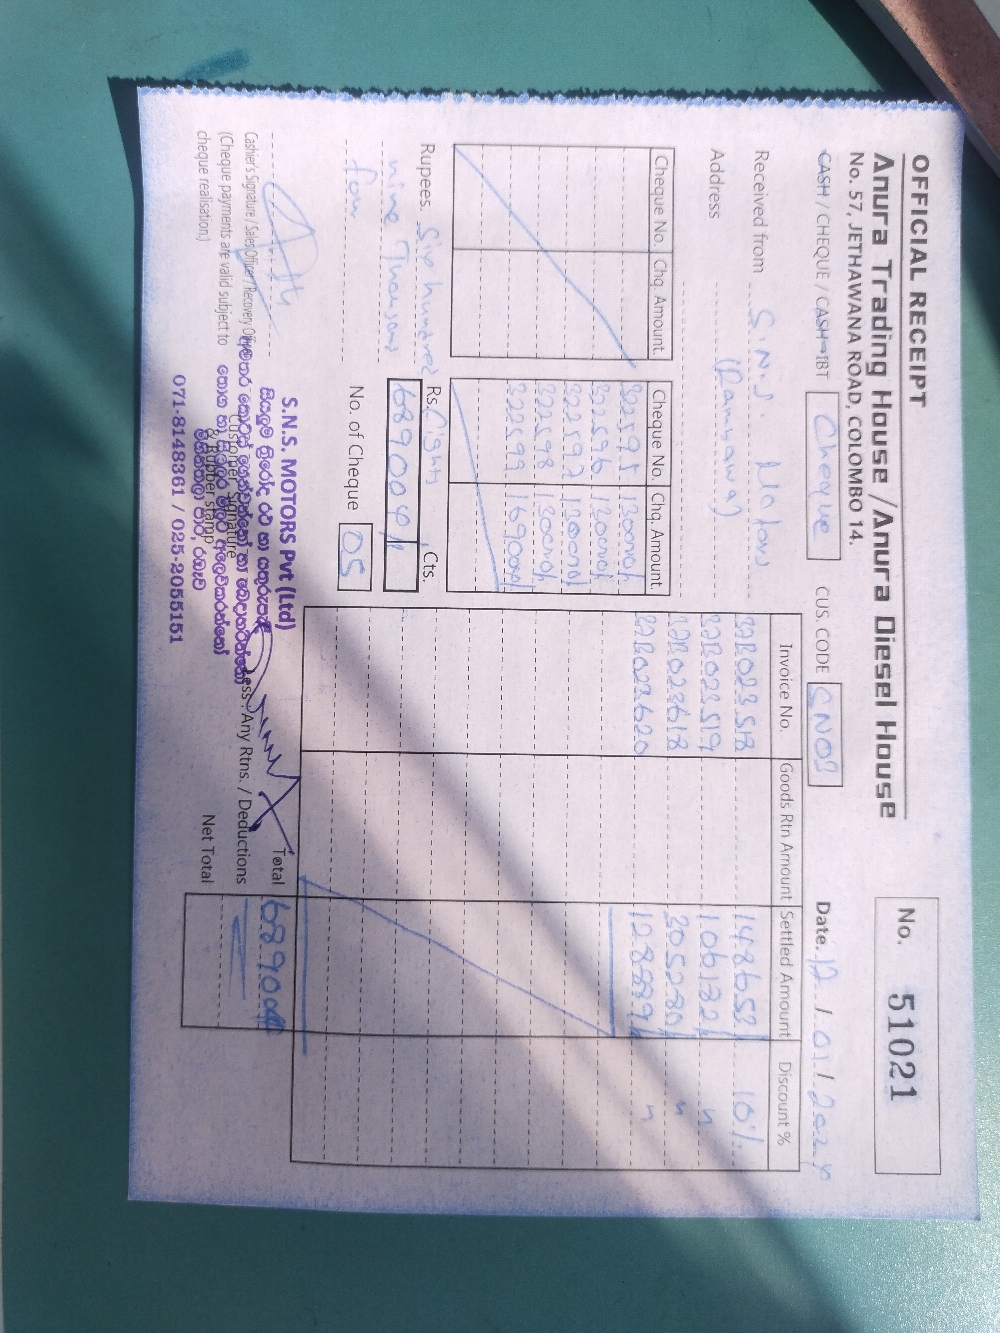 OFFICIAL RECEIPT
Anura Trading House / Anura Diesel House
No. 57, JETHAWANA ROAD, COLOMBO 14.
No. 51021
CASH / CHEQUE / CASH-TBT Cheque CUS. CODE SN03 Date. 12/01/2024
Received from S.N.S. Motors
Address (Rambawa)
Cheque No. Chq. Amount Cheque No. Chq. Amount
822595 130000/
822596 130000/
822597 130000/
822598 130000/
822599 169000/
Rupees. Six hundred Eighty
nine Thousand
four
Rs. Cts.
689004/
No. of Cheque 05
Invoice No. Goods Rtn Amount Settled Amount Discount %
32B023518 148653/ 10%
32B023519 106132/ "
32B023618 305230/ "
32B023620 128989/ "
Total 689004/
Less : Any Rtns. / Deductions
Net Total
Cashier's Signature / Sales Officer / Recovery Officer
(Cheque payments are valid subject to
cheque realisation.)
Customer Signature
& Rubber stamp
S.N.S. MOTORS Pvt (Ltd)
071-8148361 / 025-2055151